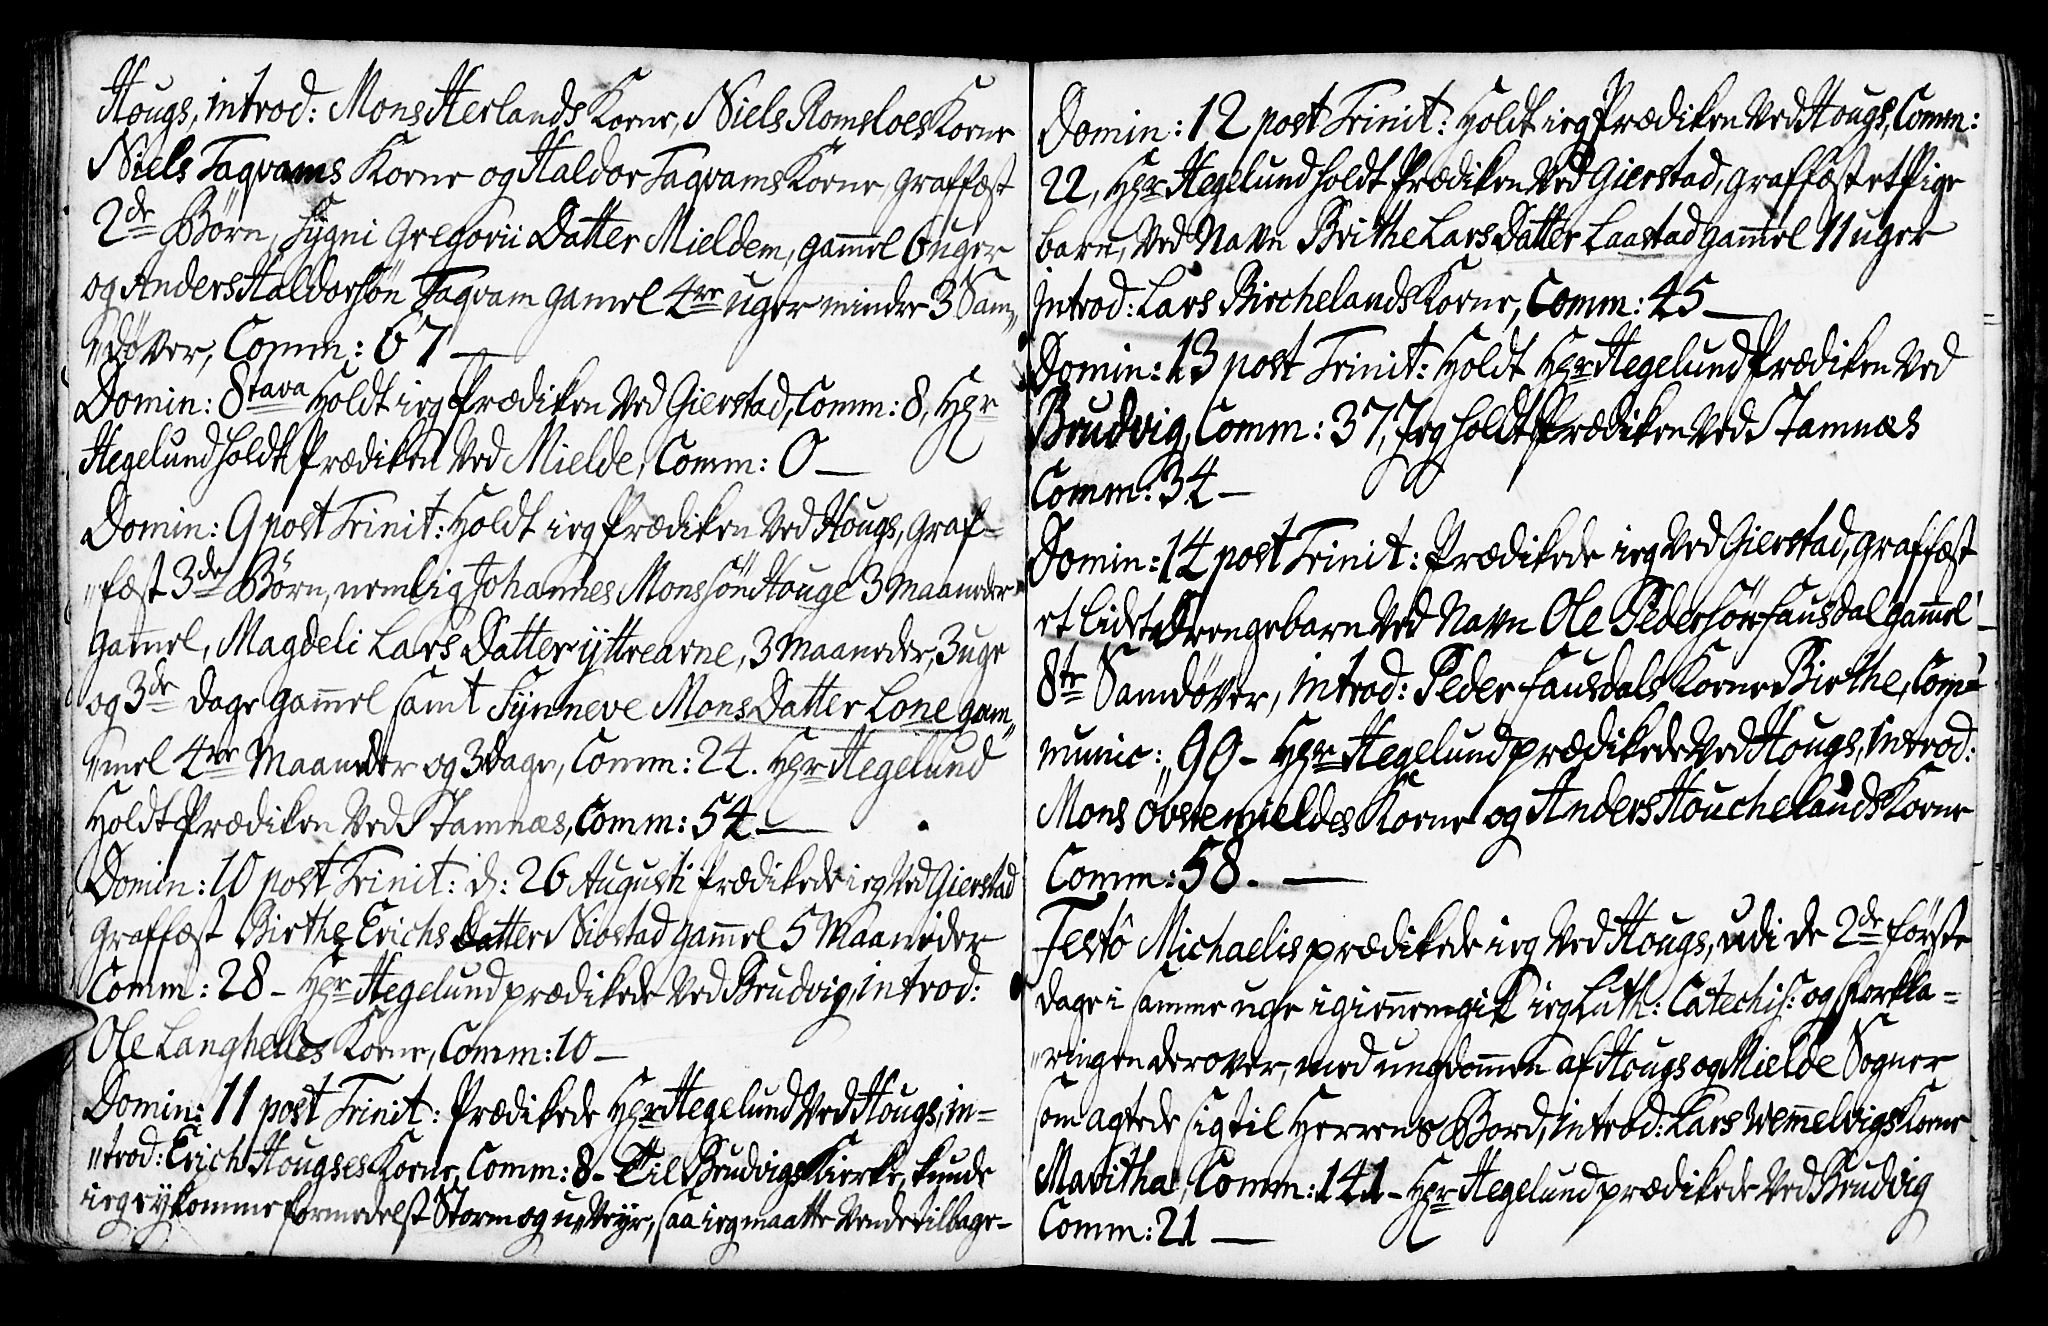 Hougs, introd: Mons Herlands Kone, Niels Romsloes Kone
Niels Taqvams Kone og Haldor Taqvams Kone, graffæst
2de Børn, Sygni Gregorii Datter Mieldem, gam̄el 6 uger
og Anders Haldorsøn Taqvam gamel 4re uger mindre 3 Sam„
„døver, Comm: 67 —
Domin: 8tava Holdt ieg Prædiken ved Gierstad, Comm: 8, Hgr
Hegelund holdt Prædiken ved Mielde, Comm: 0 —
Domin: 9 post Trinit: Holdt ieg Prædiken ved Hougs, graf-
„fæst 3de Børn, nemlig Johannes Monssøn Houge 3 Maaneder
gam̄el, Magdeli Lars Datter ÿttrearne, 3 Maaneder, 3 uge
og 3de dage gam̄el samt Sÿnneve Mons Datter Lone gam„
„mel 4re Maaneder og 3 dage, Comm: 24. Hgr Hegelund
Holdt Prædiken ved Stamnæs, Comm: 54 —
Domin: 10 post Trinit: d: 26 Augusti Prædikede ieg ved Gierstad
graffæst Birthe Erichs Datter Niostad gam̄el 5 Maaneder
Comm: 28 - Hgr Hegelund prædikede ved Brudvig, introd:
Ole Langhelles Kone, Comm: 10 —
Domin: 11 post Trinit: Prædikede Hgr Hegelund ved Hougs, in-
„trod: Erich Hougses Kone, Comm: 8 - Til Brudvigs Kierke, kunde
ieg eÿ komme formedelst Storm og u-Veÿr, saa ieg maatte vende tilbage-
Domin: 12 post Trinit: Holdt ieg Prædiken ved Hougs, Comm:
22, Hgr Hegelund holdt Prædiken ved Gierstad, graffæst et Pige
barn, ved Navn Brithe Lars Datter Laastad gam̄el 11 uger
Introd: Lars Birchelands Kone, Comm: 45 —
Domin: 13 post Trinit: Holdt Hgr Hegelund Prædiken ved
Brudvig, Comm: 37, Jeg holdt Prædiken ved Stamnæs
Comm: 34 —
Domin: 14 post Trinit: Prædikede ieg ved Gierstad, graffæst
et lidet Drengebarn ved Navn Ole Pedersøn Fausdal gam̄el
8te Samdøver, introd: Peder Fausdals Kone Birthe, Com=
munic: 90 - Hgr Hegelund prædikede ved Hougs, Introd:
Mons Øvremieldes Kone og Anders Houchelands Kone
Comm: 58. —
Festô Michaelis prædikede ieg ved Hougs, udi de 2de første
dage i samme uge igiennemgik ieg Luth: Catechis: og Forkla=
„ringen derover, med ungdom̄en af Hougs og Mielde Sogner
som agtede sig til Herrens Bord, introd: Lars Wem̄elvigs Kone
Maritha, Comm: 141 - Hgr Hegelund prædikede ved Brudvig
Comm: 21 —